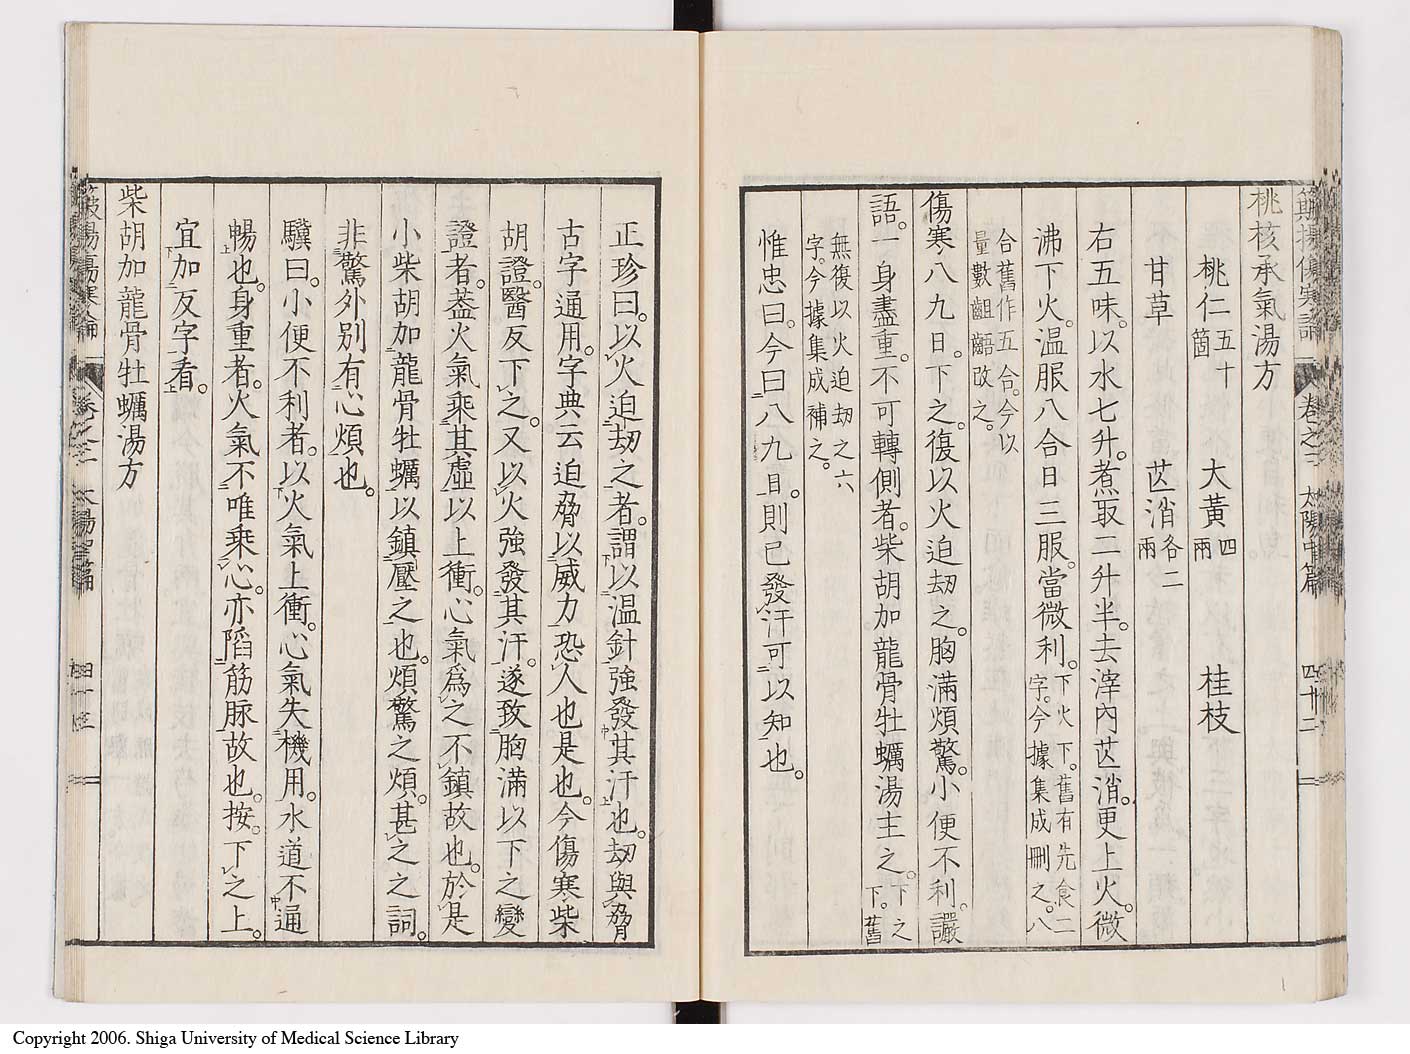 桃核承氣湯方
桃仁五十箇 大黃四兩 桂枝
甘草 芒消各二兩
右五味。以水七升。煮取二升半。去滓內芒消。更上火。微
沸下火。溫服八合日三服。當微利。下火下。舊有先食二字。今據集成刪之。八
合舊作五合。今以量數齟齬改之。
傷寒八九日。下之。復以火迫劫之。胸滿煩驚。小便不利。讝
語。一身盡重。不可轉側者。柴胡加龍骨牡蠣湯主之。下之下。舊
無復以火迫劫之六字。今據集成補之。
惟忠曰。今曰八九日。則已發汗可以知也。
正珍曰。以火迫劫之者。謂以溫針強發其汗也。劫與脅
古字通用。字典云迫脅以威力恐人也是也。今傷寒柴
胡證。醫反下之。又以火強發其汗。遂致胸滿以下之變
證者。蓋火氣乘其虛以上衝。心氣爲之不鎮故也。於是
小柴胡加龍骨牡蠣以鎮壓之也。煩驚之煩。甚之之詞。
非驚外別有心煩也。
驥曰。小便不利者。以火氣上衝。心氣失機用。水道不通
暢也。身重者。火氣不唯乘心。亦陷筋脉故也。按。下之上。
宜加反字看。
柴胡加龍骨牡蠣湯方
卷之三 太陽中篇 四十二
Copyright 2006. Shiga University of Medical Science Library